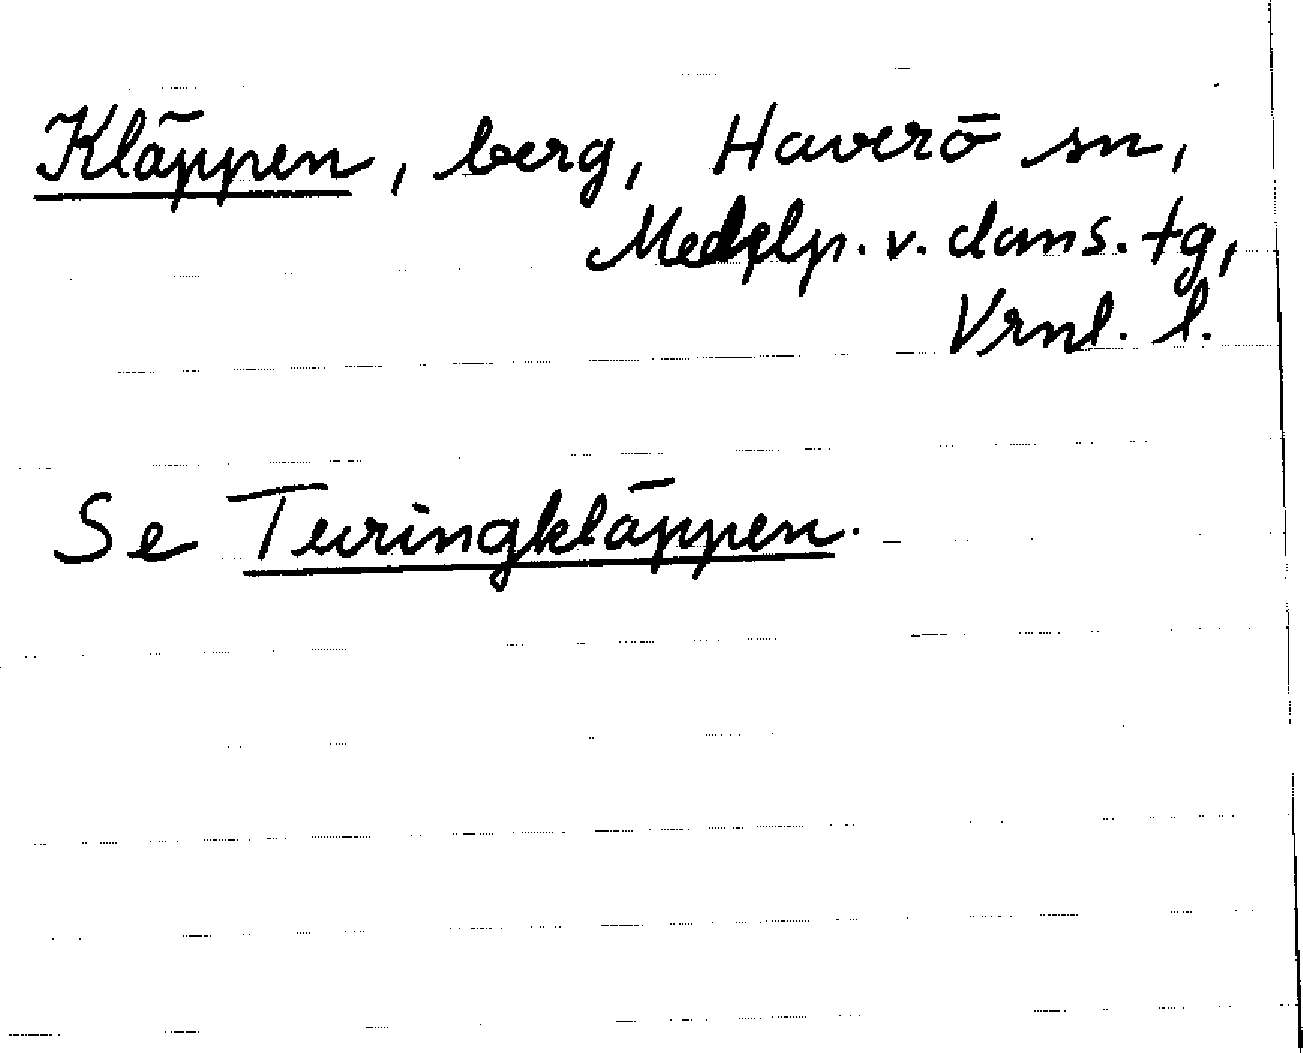 Kläppen, berg, Haverö sn,
Medelp. v. doms. tg,
Vrnl. l.
Se Turingkläppen.